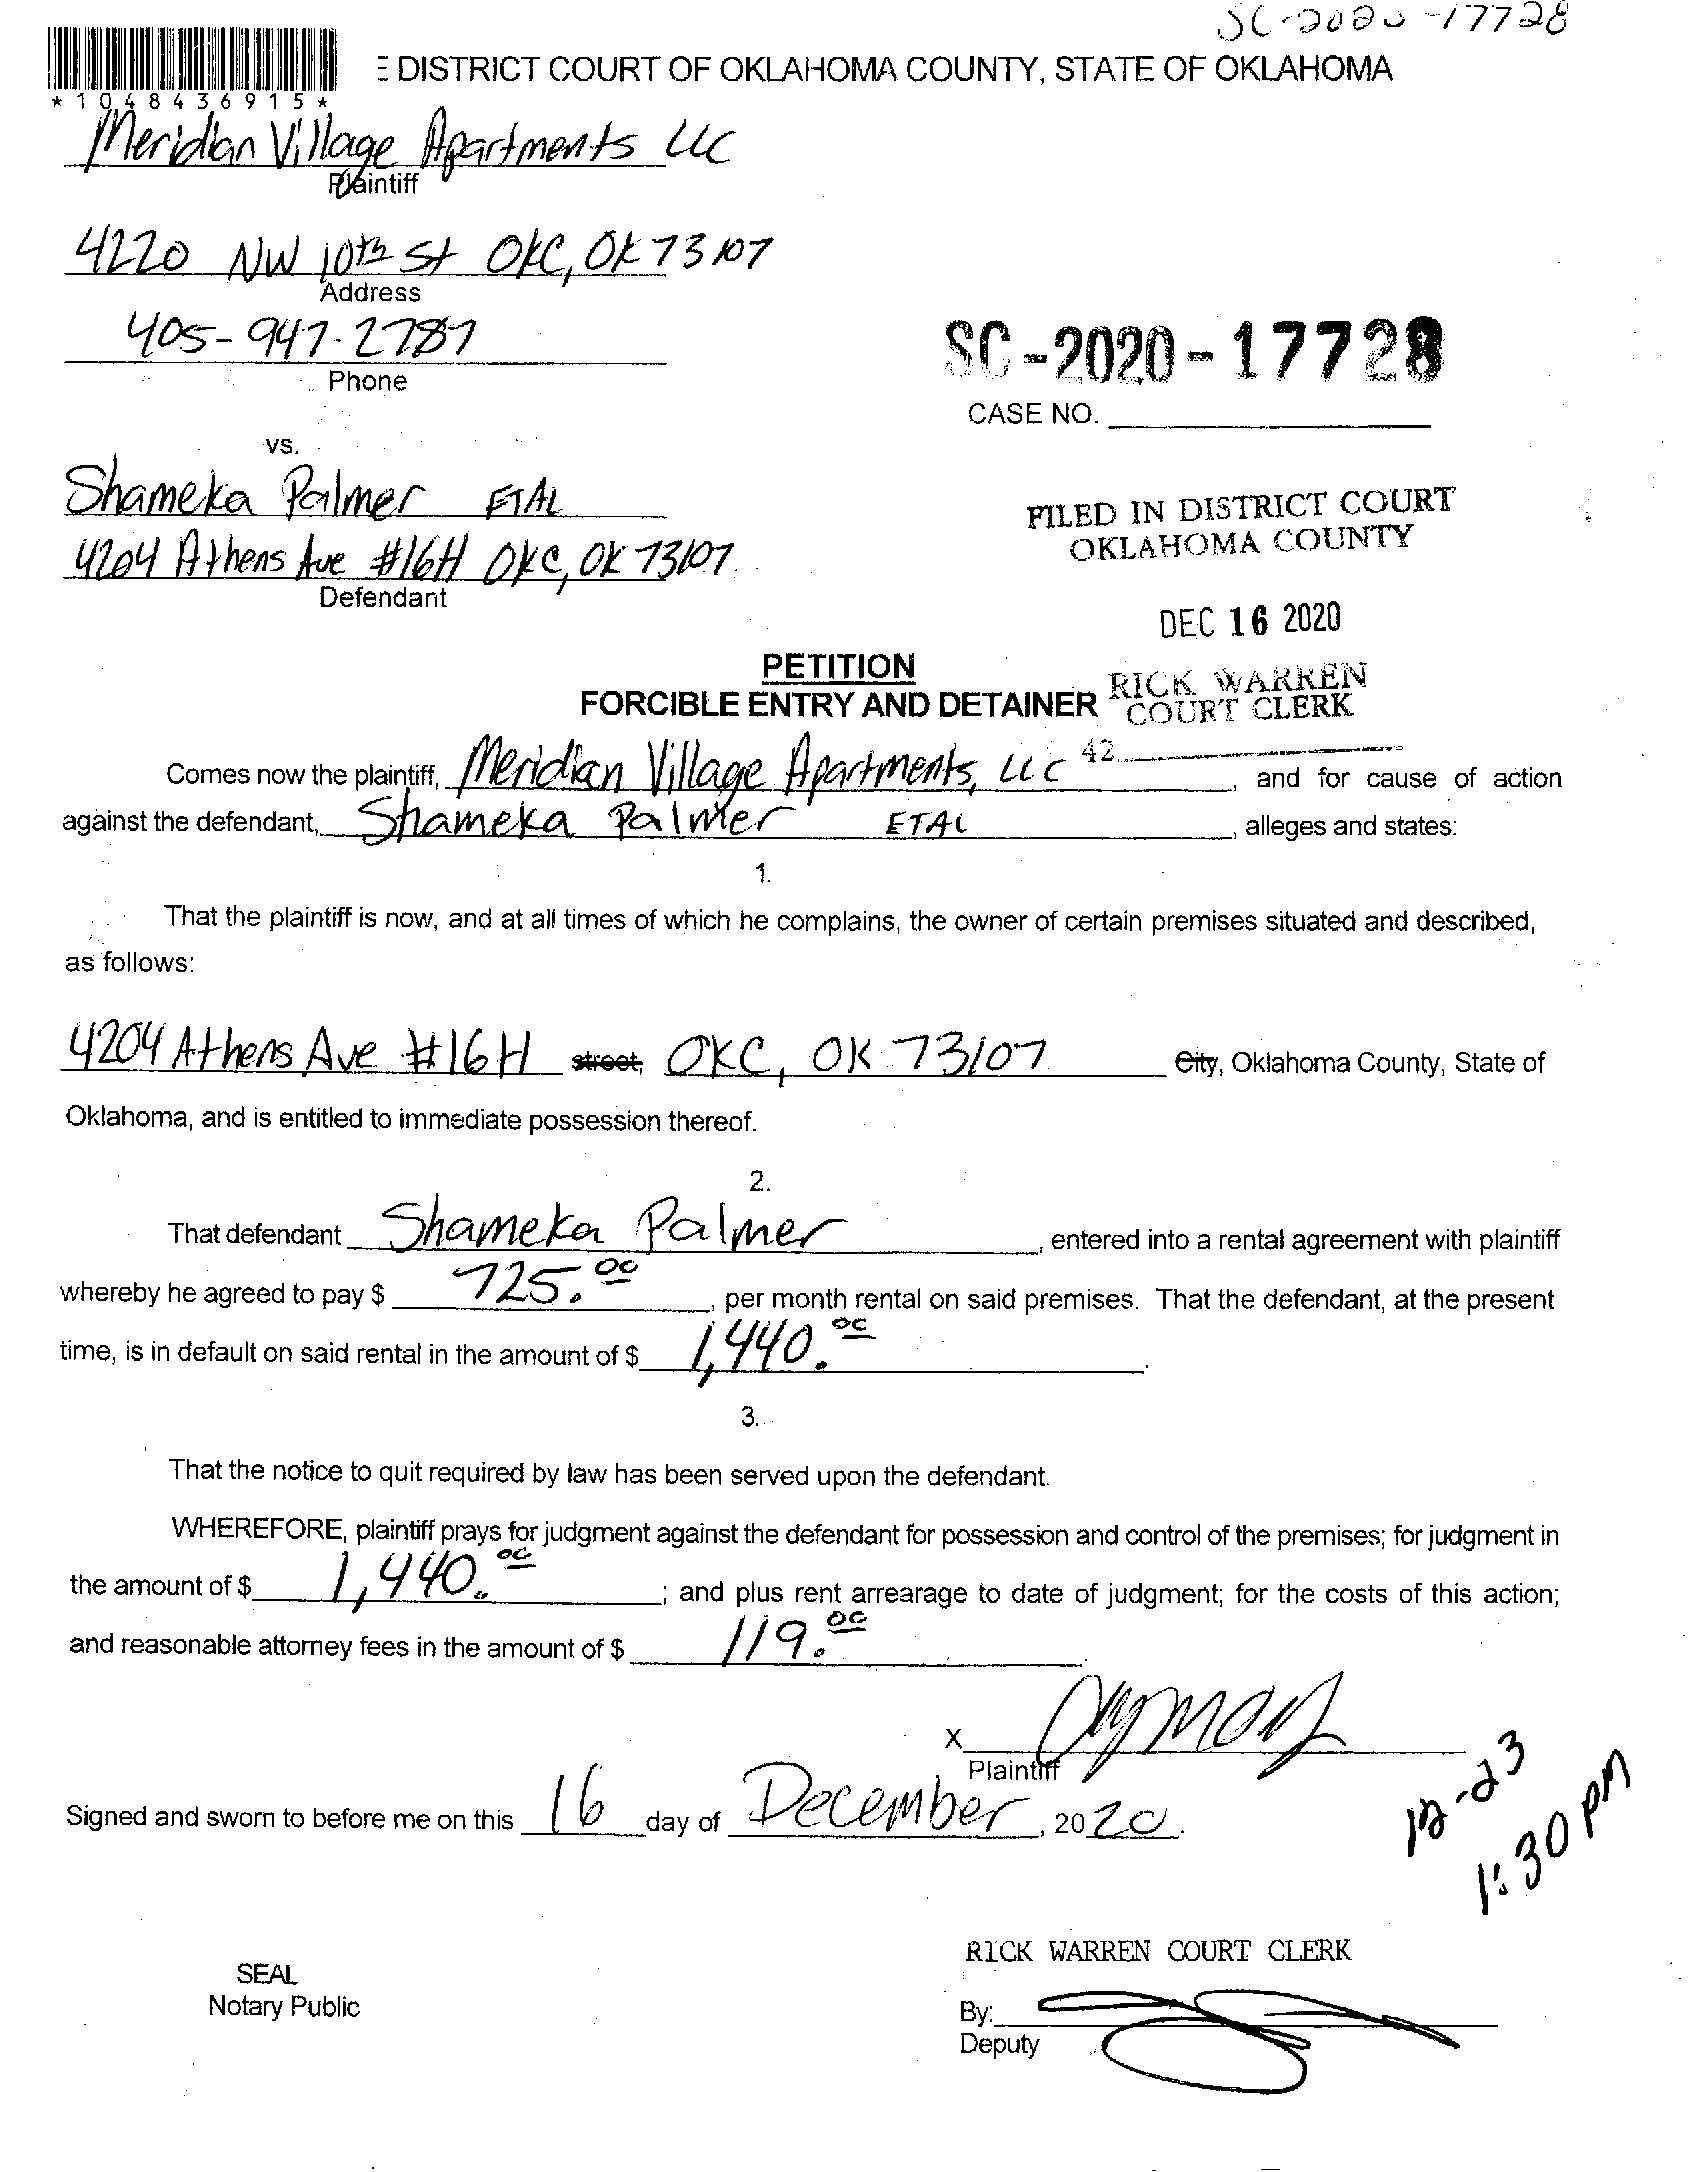 SC-2020-17728
DISTRICT COURT OF OKLAHOMA COUNTY, STATE OF OKLAHOMA
*1048436915*
Meridian Village Apartments LLC
Plaintiff
4220 NW 10th St OKC, OK 73107
Address
405-947-2787
Phone
SC-2020-17728
CASE NO.
vs.
Shameka Palmer ETAL
4204 Athens Ave #16H OKC, OK 73107
Defendant
FILED IN DISTRICT COURT
OKLAHOMA COUNTY
DEC 16 2020
RICK WARREN
COURT CLERK
42
PETITION
FORCIBLE ENTRY AND DETAINER
Comes now the plaintiff, Meridian Village Apartments, LLC, and for cause of action
against the defendant, Shameka Palmer ETAL, alleges and states:
1.
That the plaintiff is now, and at all times of which he complains, the owner of certain premises situated and described,
as follows:
4204 Athens Ave #16H street, OKC, OK 73107 City, Oklahoma County, State of
Oklahoma, and is entitled to immediate possession thereof.
2.
That defendant Shameka Palmer, entered into a rental agreement with plaintiff
whereby he agreed to pay $ 725.00, per month rental on said premises. That the defendant, at the present
time, is in default on said rental in the amount of $ 1,440.00.
3.
That the notice to quit required by law has been served upon the defendant.
WHEREFORE, plaintiff prays for judgment against the defendant for possession and control of the premises; for judgment in
the amount of $ 1,440.00; and plus rent arrearage to date of judgment; for the costs of this action;
and reasonable attorney fees in the amount of $ 119.00.
X
Plaintiff
Signed and sworn to before me on this 16 day of December, 2020.
12-23
1:30 PM
RICK WARREN COURT CLERK
SEAL
Notary Public
By:
Deputy